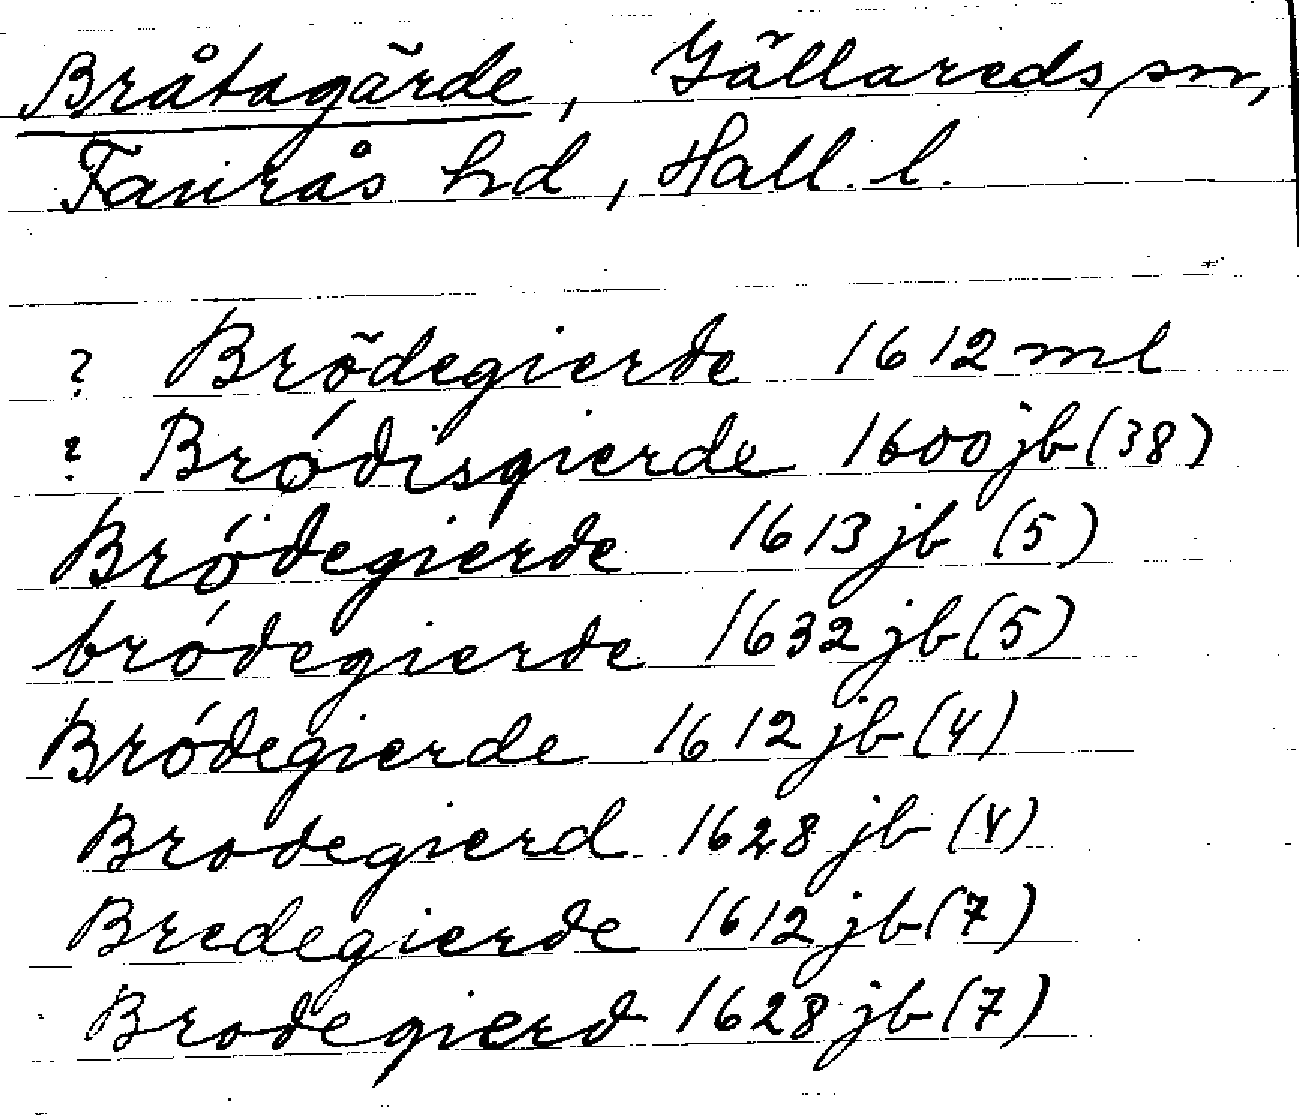 Bråtagärde, Gällareds sn,
Faurås hd, Hall. l.
? Brõdegierde 1612 ml
? Bródisgierde 1600 jb (38)
Bródegierde 1613 jb (5)
bródegierde 1632 jb (5)
Bródegierde 1612 jb (4)
Brodegierd 1628 jb (4)
Bredegierde 1612 jb (7)
Brodegierd 1628 jb (7)